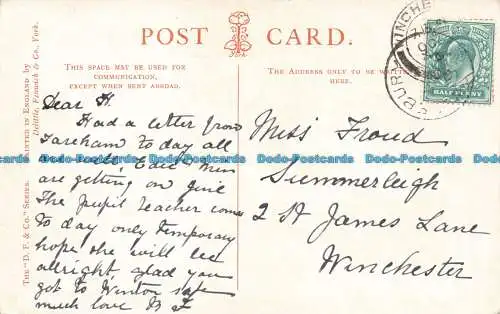 POST CARD.
THIS SPACE MAY BE USED FOR
COMMUNICATION,
EXCEPT WHEN SENT ABROAD.
THE ADDRESS ONLY TO BE WRITTEN
HERE.
THE "D. F. & Co." SERIES.
PRINTED IN ENGLAND BY
Delittle, Fenwick & Co., York.
HALF PENNY
Dear H.
Had a letter from
Fareham to day all
are well. Edie
are getting on
The Pupil teacher comes
to day only temporary
hope she will be
alright, glad you
got to Winton safe
much love
Miss Froud
Summerleigh
2 St James Lane
Winchester
Postcards
Postcards
Postcards
Postcards